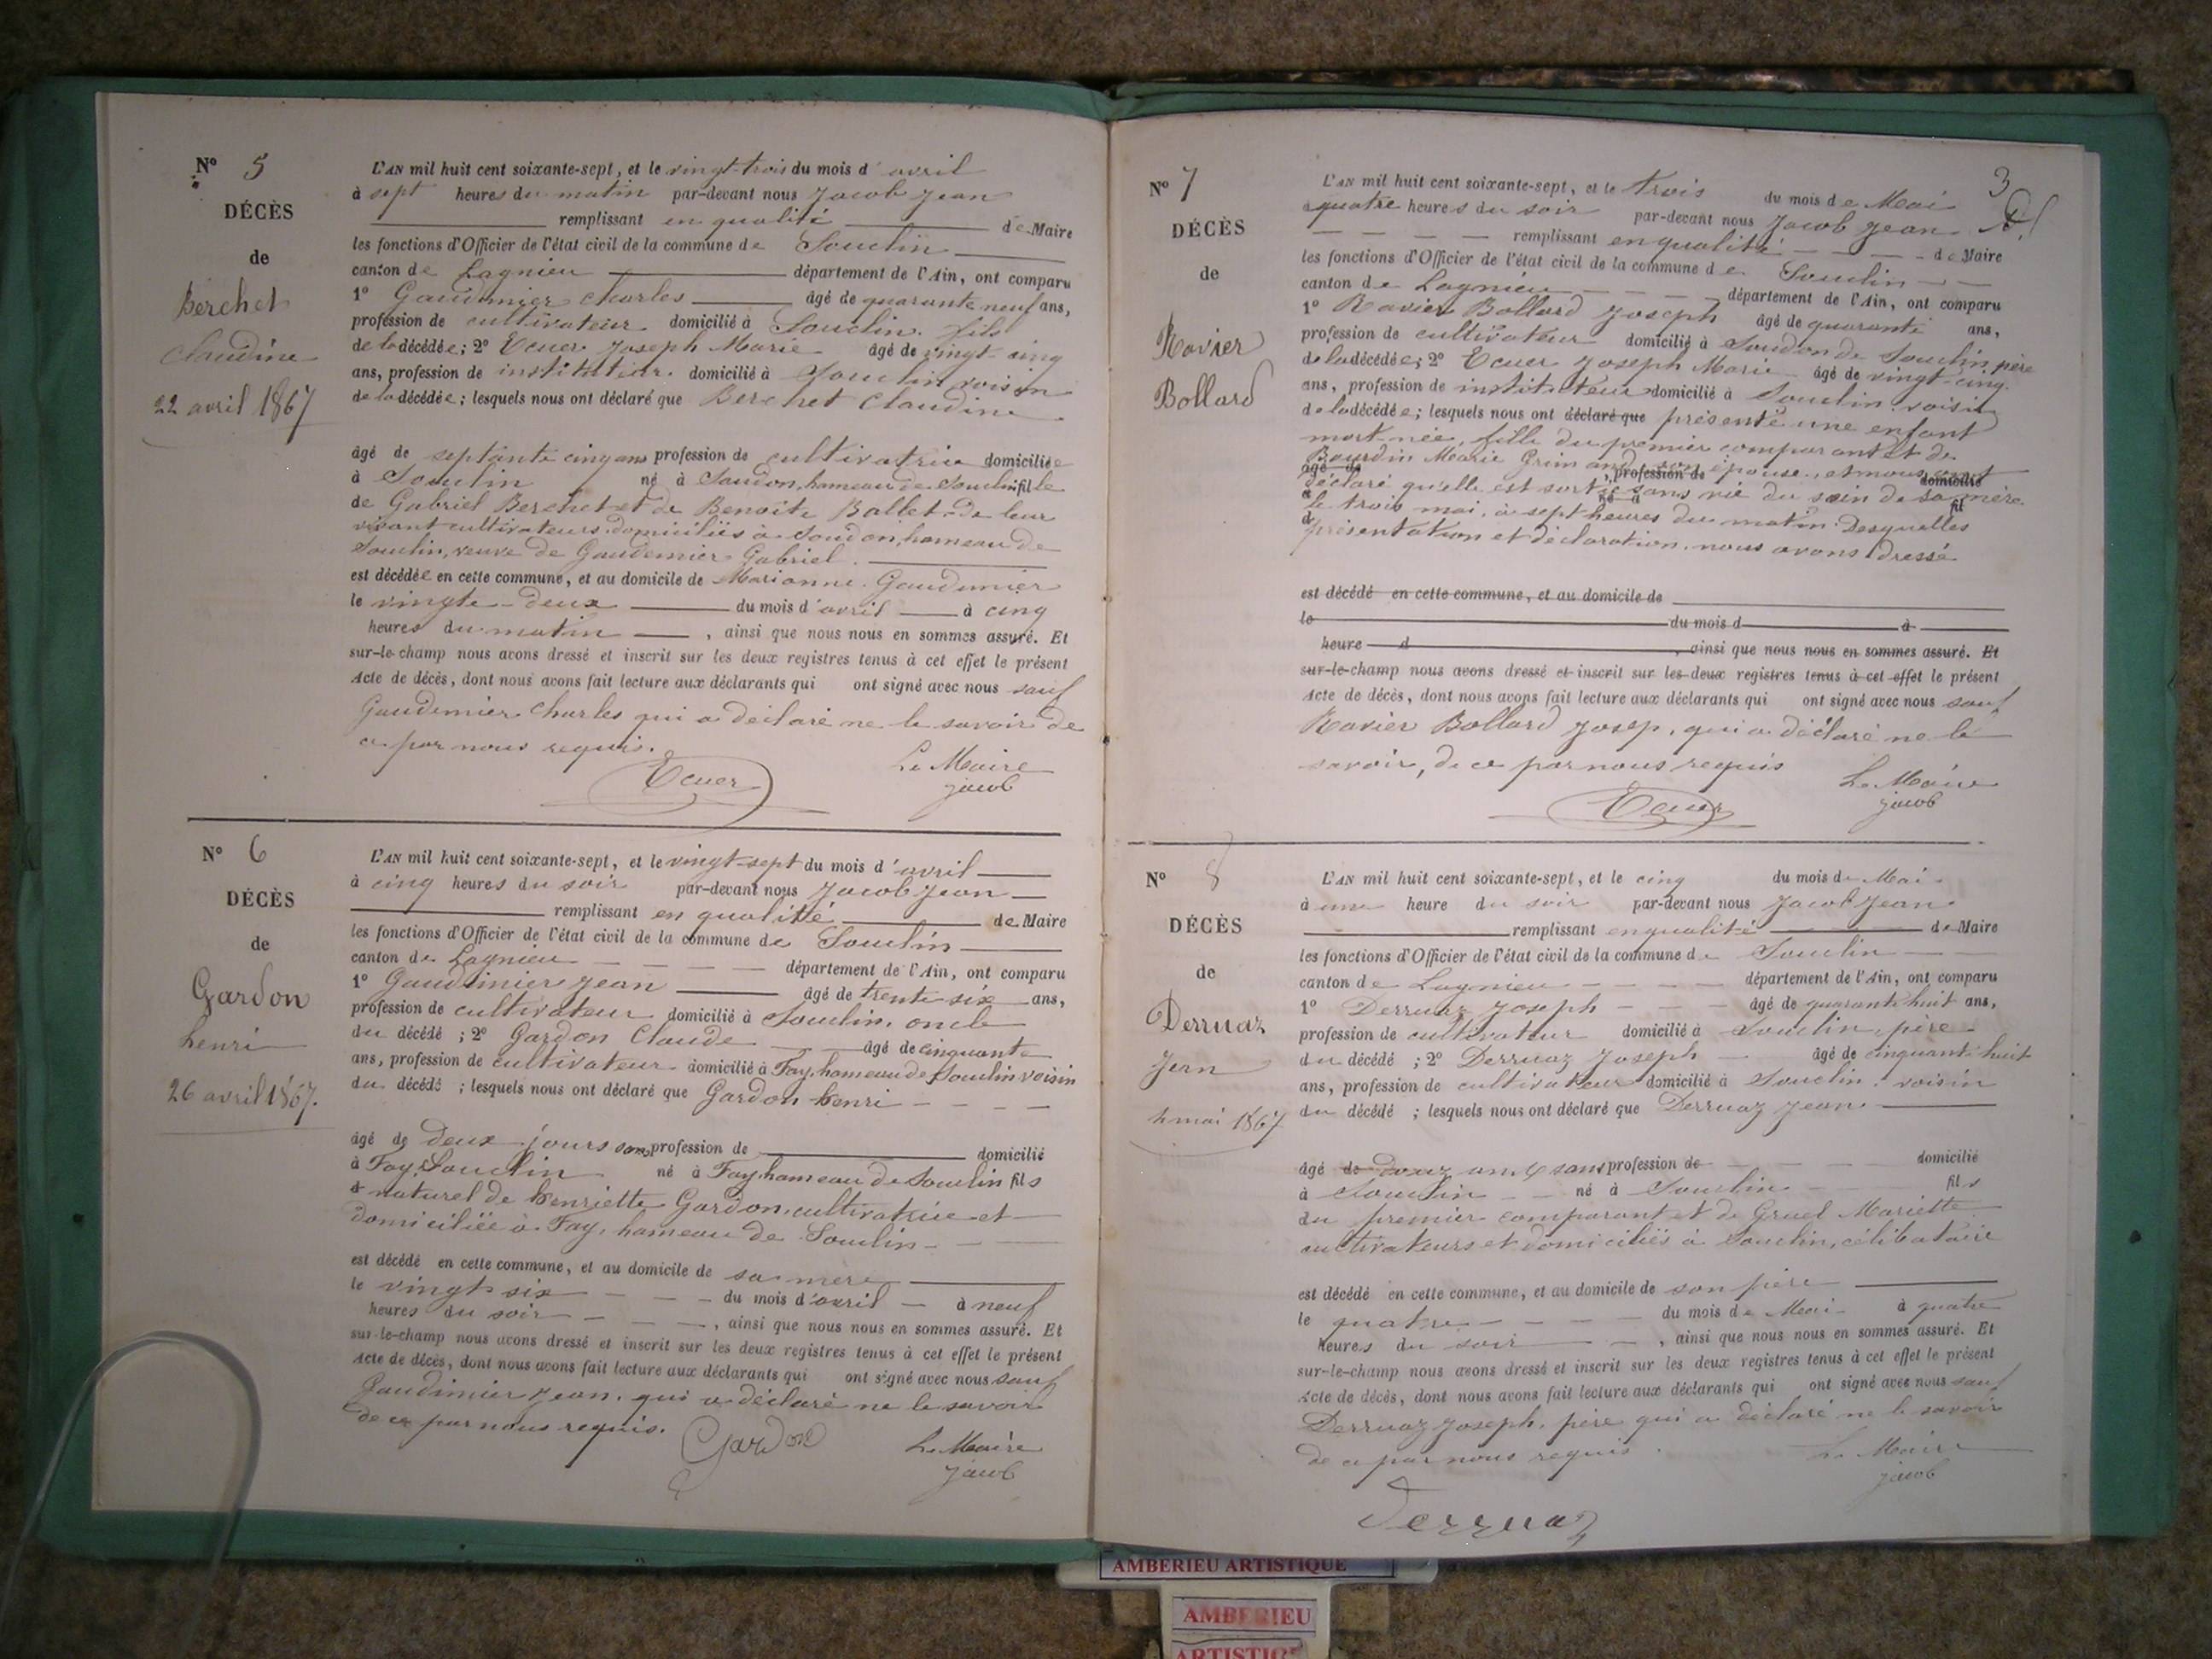 N° 5
DÉCÈS
de
Berchet
Claudine
22 avril 1867
L'AN mil huit cent soixante-sept, et le vingt-trois du mois d'avril
à sept heures du matin par-devant nous Jacob Jean
remplissant en qualité de Maire
les fonctions d'Officier de l'état civil de la commune de Souclin
canton de Lagnieu département de l'Ain, ont comparu
1° Gaudimier Charles âgé de quarante neuf ans,
profession de cultivateur domicilié à Souclin. fils
de la décédée; 2° Ecuer Joseph Marie âgé de vingt-cinq
ans, profession de instituteur domicilié à Souclin voisin
de la décédée; lesquels nous ont déclaré que Berchet Claudine
âgé de septante cinq ans profession de cultivatrice domiciliée
à Souclin né à Soudon, hameau de Souclin fille
de Gabriel Berchet et de Benoite Ballet, de leur
vivant cultivateurs domiciliés à Soudon, hameau de
Souclin, veuve de Gaudemier Gabriel.
est décédée en cette commune, et au domicile de Marianne Gaudimier
le vingte-deux du mois d'avril à cinq
heures du matin, ainsi que nous nous en sommes assuré. Et
sur-le-champ nous avons dressé et inscrit sur les deux registres tenus à cet effet le présent
Acte de décès, dont nous avons fait lecture aux déclarants qui ont signé avec nous sauf
Gaudemier Charles qui a déclaré ne le savoir de
ce par nous requis.
Ecuer
Le Maire
Jacob
N° 6
DÉCÈS
de
Gardon
henri
26 avril 1867.
L'AN mil huit cent soixante-sept, et le vingt-sept du mois d'avril
à cinq heures du soir par-devant nous Jacob Jean
remplissant en qualité de Maire
les fonctions d'Officier de l'état civil de la commune de Souclin
canton de Lagnieu département de l'Ain, ont comparu
1° Gaudimier Jean âgé de trente six ans,
profession de cultivateur domicilié à Souclin, oncle
du décédé ; 2° Gardon Claude âgé de cinquante
ans, profession de cultivateur domicilié à Fay, hameau de Souclin voisin
du décédé ; lesquels nous ont déclaré que Gardon henri
âgé de deux jours sans profession de domicilié
à Fay Souclin né à Fay hameau de Souclin fils
naturel de henriette Gardon, cultivatrice et
domiciliée à Fay, hameau de Souclin
est décédé en cette commune, et au domicile de sa mère
le vingt six du mois d'avril à neuf
heures du soir, ainsi que nous nous en sommes assuré. Et
sur-le-champ nous avons dressé et inscrit sur les deux registres tenus à cet effet le présent
Acte de décès, dont nous avons fait lecture aux déclarants qui ont signé avec nous sauf
Gaudimier Jean, qui a déclaré ne le savoir
de ce par nous requis.
Gardon
Le Maire
Jacob
3
N° 7
DÉCÈS
de
Ravier
Bollard
L'AN mil huit cent soixante-sept, et le trois du mois de Mai
à quatre heures du soir par-devant nous Jacob Jean
remplissant en qualité de Maire
les fonctions d'Officier de l'état civil de la commune de Souclin
canton de Lagnieu département de l'Ain, ont comparu
1° Ravier Bollard Joseph âgé de quarante ans,
profession de cultivateur domicilié à Soudon de Souclin, père
de la décédée; 2° Ecuer Joseph Marie âgé de vingt-cinq
ans, profession de instituteur domicilié à Souclin voisin
de la décédée; lesquels nous ont déclaré que présenté une enfant
mort-née, fille du premier comparant et de
Bourdin Marie Grimand son épouse, et nous ont
âgé de profession de domicilié
déclaré qu'elle est sortie sans vie du sein de sa mère
à né à fil
le trois mai, à sept heures du matin. Desquelles
présentation et déclaration, nous avons dressé
est décédé en cette commune, et au domicile de
le du mois d à
heure d , ainsi que nous nous en sommes assuré. Et
sur-le-champ nous avons dressé et inscrit sur les deux registres tenus à cet effet le présent
Acte de décès, dont nous avons fait lecture aux déclarants qui ont signé avec nous sauf
Ravier Bollard Josep, qui a déclaré ne le
savoir, de ce par nous requis
Ecuer
Le Maire
Jacob
N° 8
DÉCÈS
de
Derruaz
Jean
4 mai 1867
L'AN mil huit cent soixante-sept, et le cinq du mois de Mai
à une heure du soir par-devant nous Jacob Jean
remplissant en qualité de Maire
les fonctions d'Officier de l'état civil de la commune de Souclin
canton de Lagnieu département de l'Ain, ont comparu
1° Derruaz Joseph âgé de quarante huit ans,
profession de cultivateur domicilié à Souclin, père
du décédé ; 2° Derruaz Joseph âgé de cinquante huit
ans, profession de cultivateur domicilié à Souclin, voisin
du décédé ; lesquels nous ont déclaré que Derruaz Jean
âgé de sans profession de domicilié
à Souclin né à Souclin fils
du premier comparant et de Gruel Mariette
cultivateurs et domiciliés à Souclin, célibataire
est décédé en cette commune, et au domicile de son père
le quatre du mois de Mai à quatre
heures du soir, ainsi que nous nous en sommes assuré. Et
sur-le-champ nous avons dressé et inscrit sur les deux registres tenus à cet effet le présent
Acte de décès, dont nous avons fait lecture aux déclarants qui ont signé avec nous sauf
Derruaz Joseph, père qui a déclaré ne le savoir
de ce par nous requis.
Le Maire
Jacob
Derruaz
AMBERIEU ARTISTIQUE
AMBERIEU
ARTISTIQ